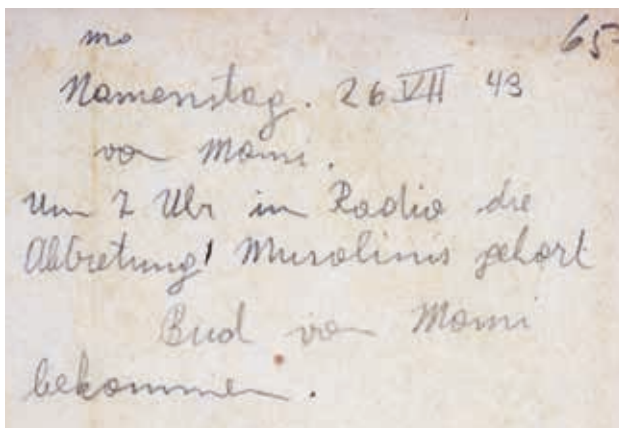 mo 65
Namenstag. 26 VII 43
von Mami.
Um 7 Uhr in Radio die
Abtretung! Musolinis gehört
Bud von Mami
bekommen.